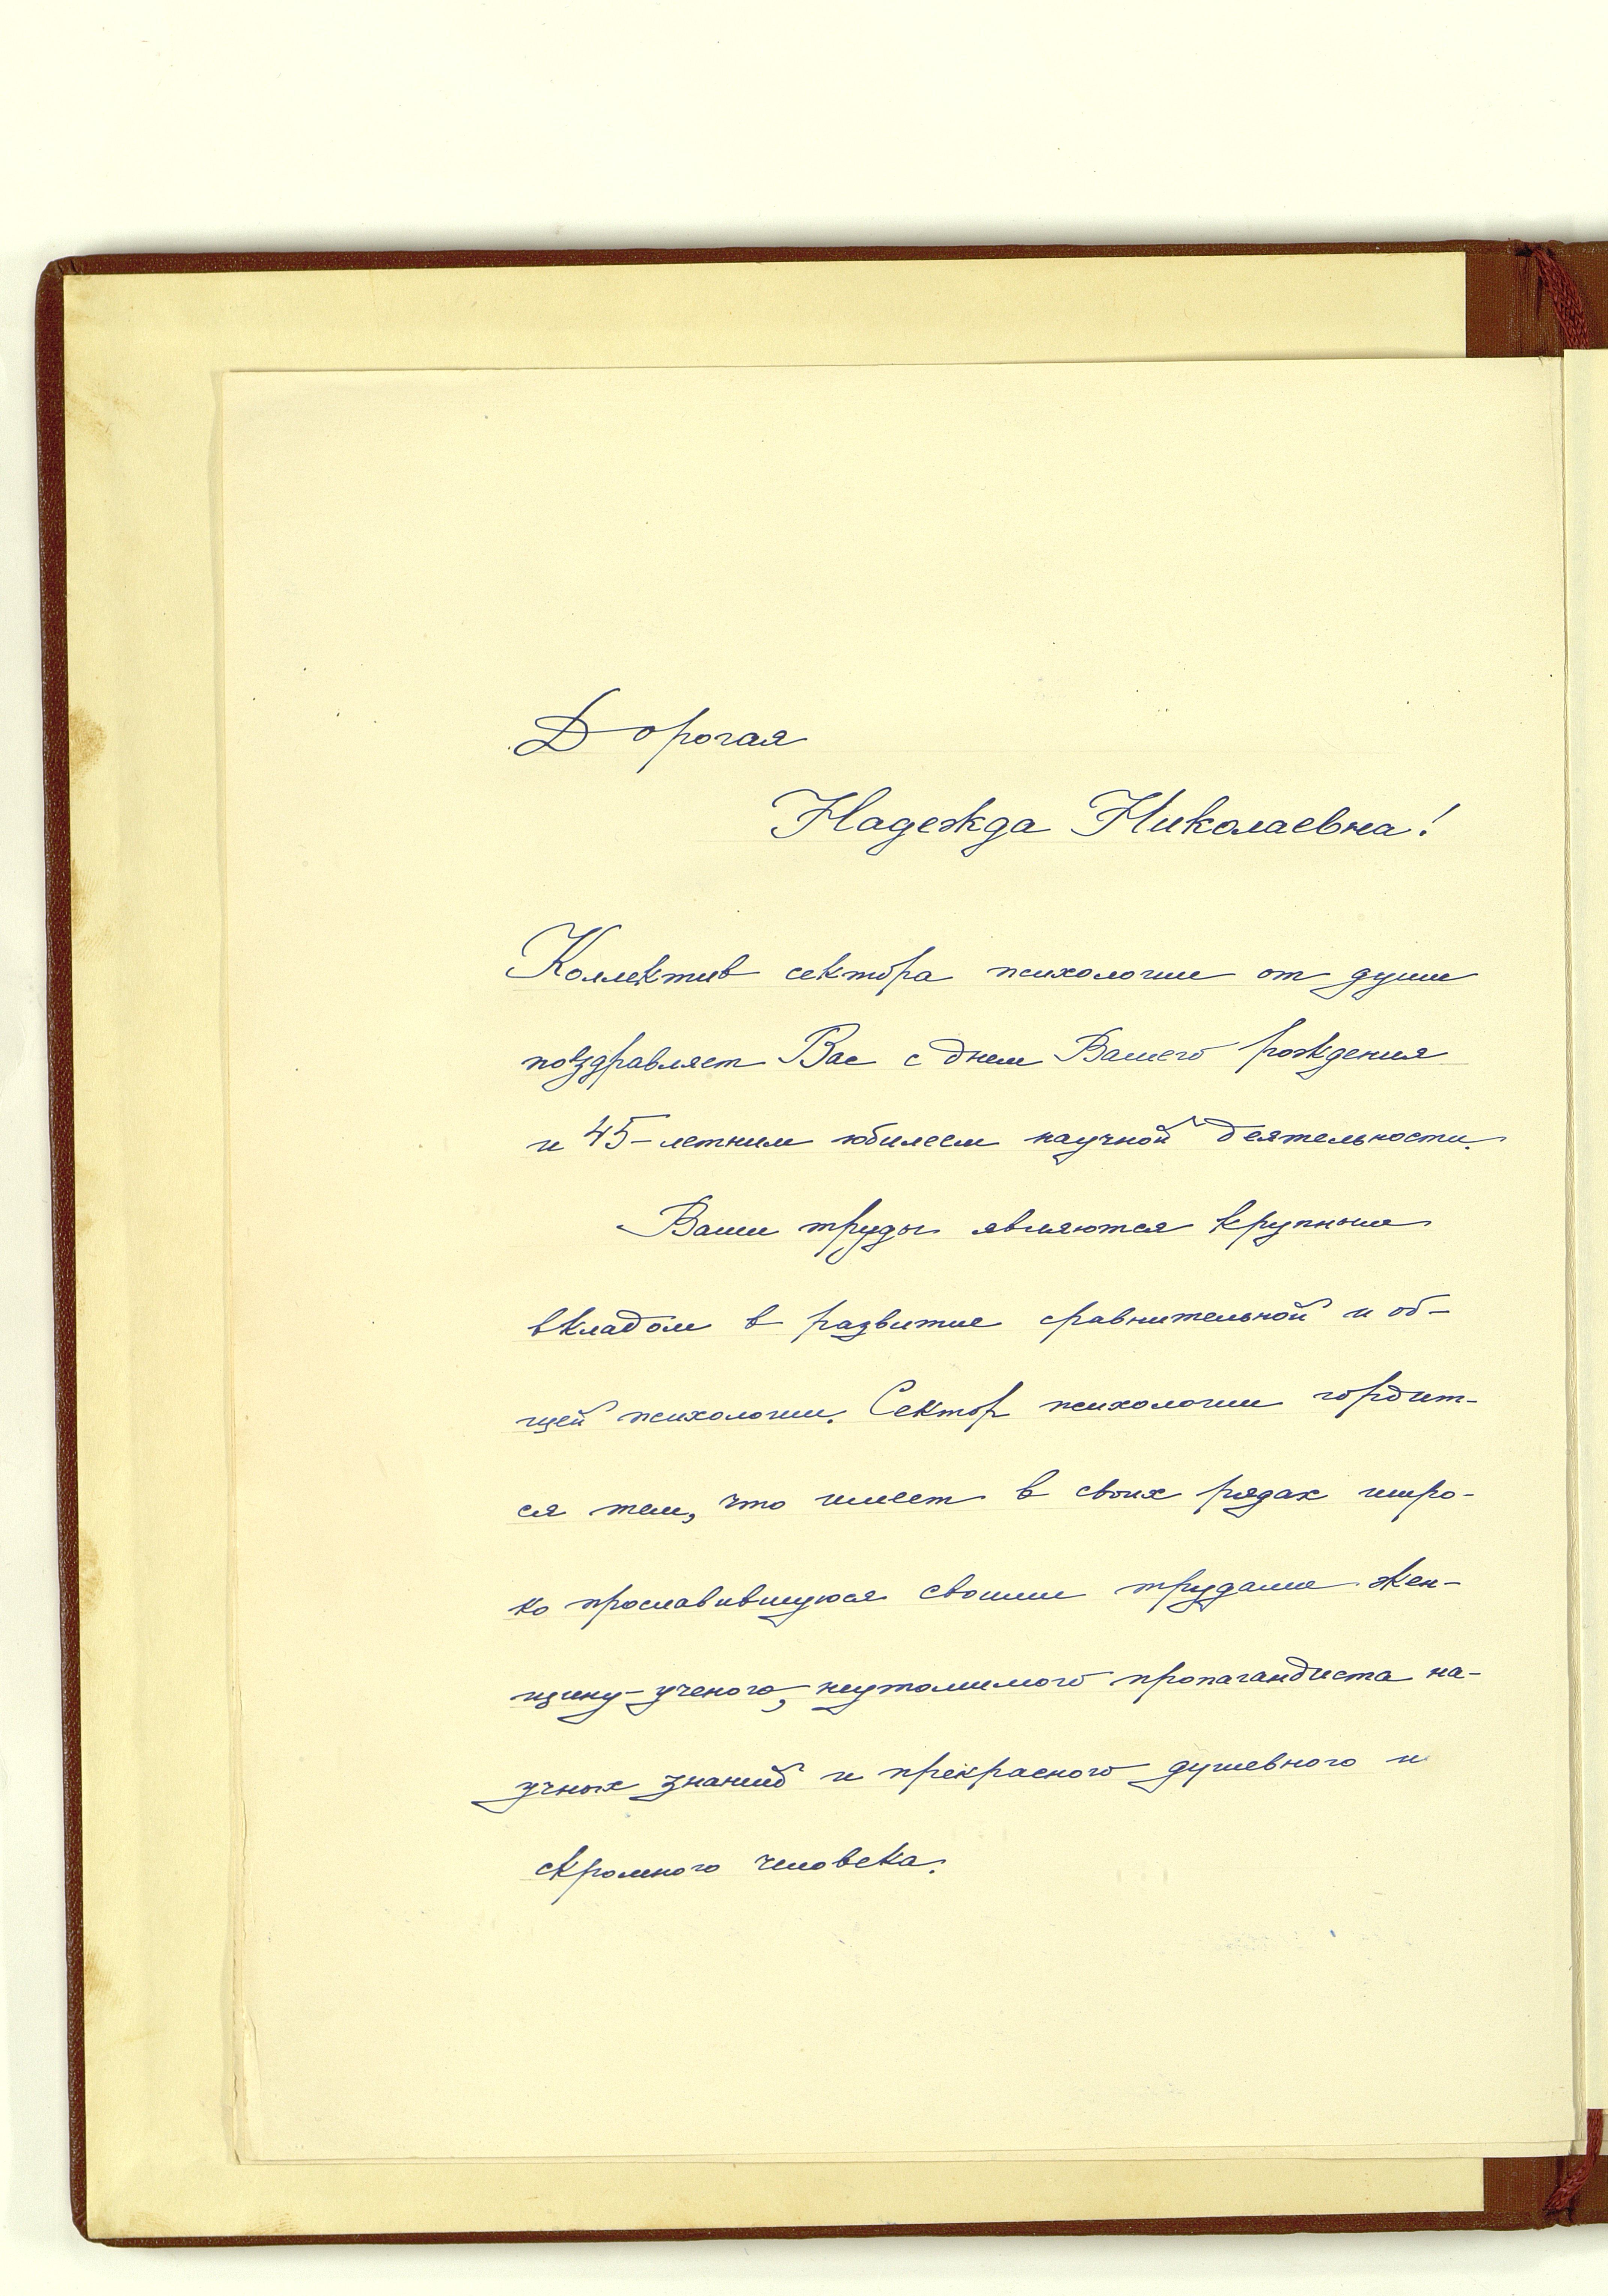 Дорогая
Надежда Николаевна!
Коллектив сектора психологии от души
поздравляет Вас с днем Вашего рождения
и 45-летним юбилеем научной деятельности.
Ваши труды являются крупным
вкладом в развитие сравнительной и об-
щей психологии. Сектор психологии гордит-
ся тем, что имеет в своих рядах широ-
ко прославившуюся своими трудами жен-
щину-ученого, неутомимого пропагандиста на-
учных знаний и прекрасного душевного и
скромного человека.